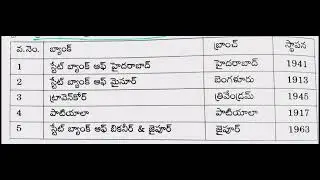 వ.నెం. బ్యాంక్ బ్రాంచ్ స్థాపన
1 స్టేట్ బ్యాంక్ ఆఫ్ హైదరాబాద్ హైదరాబాద్ 1941
2 స్టేట్ బ్యాంక్ ఆఫ్ మైసూర్ బెంగళూరు 1913
3 ట్రావెన్‌కోర్ త్రివేండ్రమ్ 1945
4 పాటియాలా పాటియాలా 1917
5 స్టేట్ బ్యాంక్ ఆఫ్ బికనీర్ & జైపూర్ జైపూర్ 1963